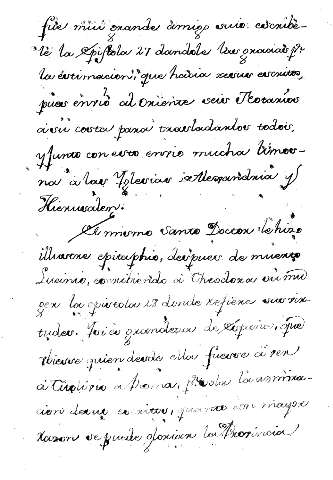 fue mui grande amigo suio escribe-
le la Epistola 27 dandole las gracias pr
la estimacion, que havia a sus escritos,
pues envió al Oriente seis Notarios
á su costa para trasladarlos todos,
y junto con esto envió mucha limos-
na á las Yglesias de Alexandria y
Hierusalem.
El mismo Santo Doctor le hizo
illustre epitaphio, despues de muerto
Lucinio, escriviendo á Theodora su mu
ger la epistola 29 donde refiere sus vir-
tudes. Fué grandeza de España, que
tuviese quien desde ella fuese á ver
á á Roma, por la
cion de sus escritos, quanto con mayor
razon se puede gloriar la Provincia